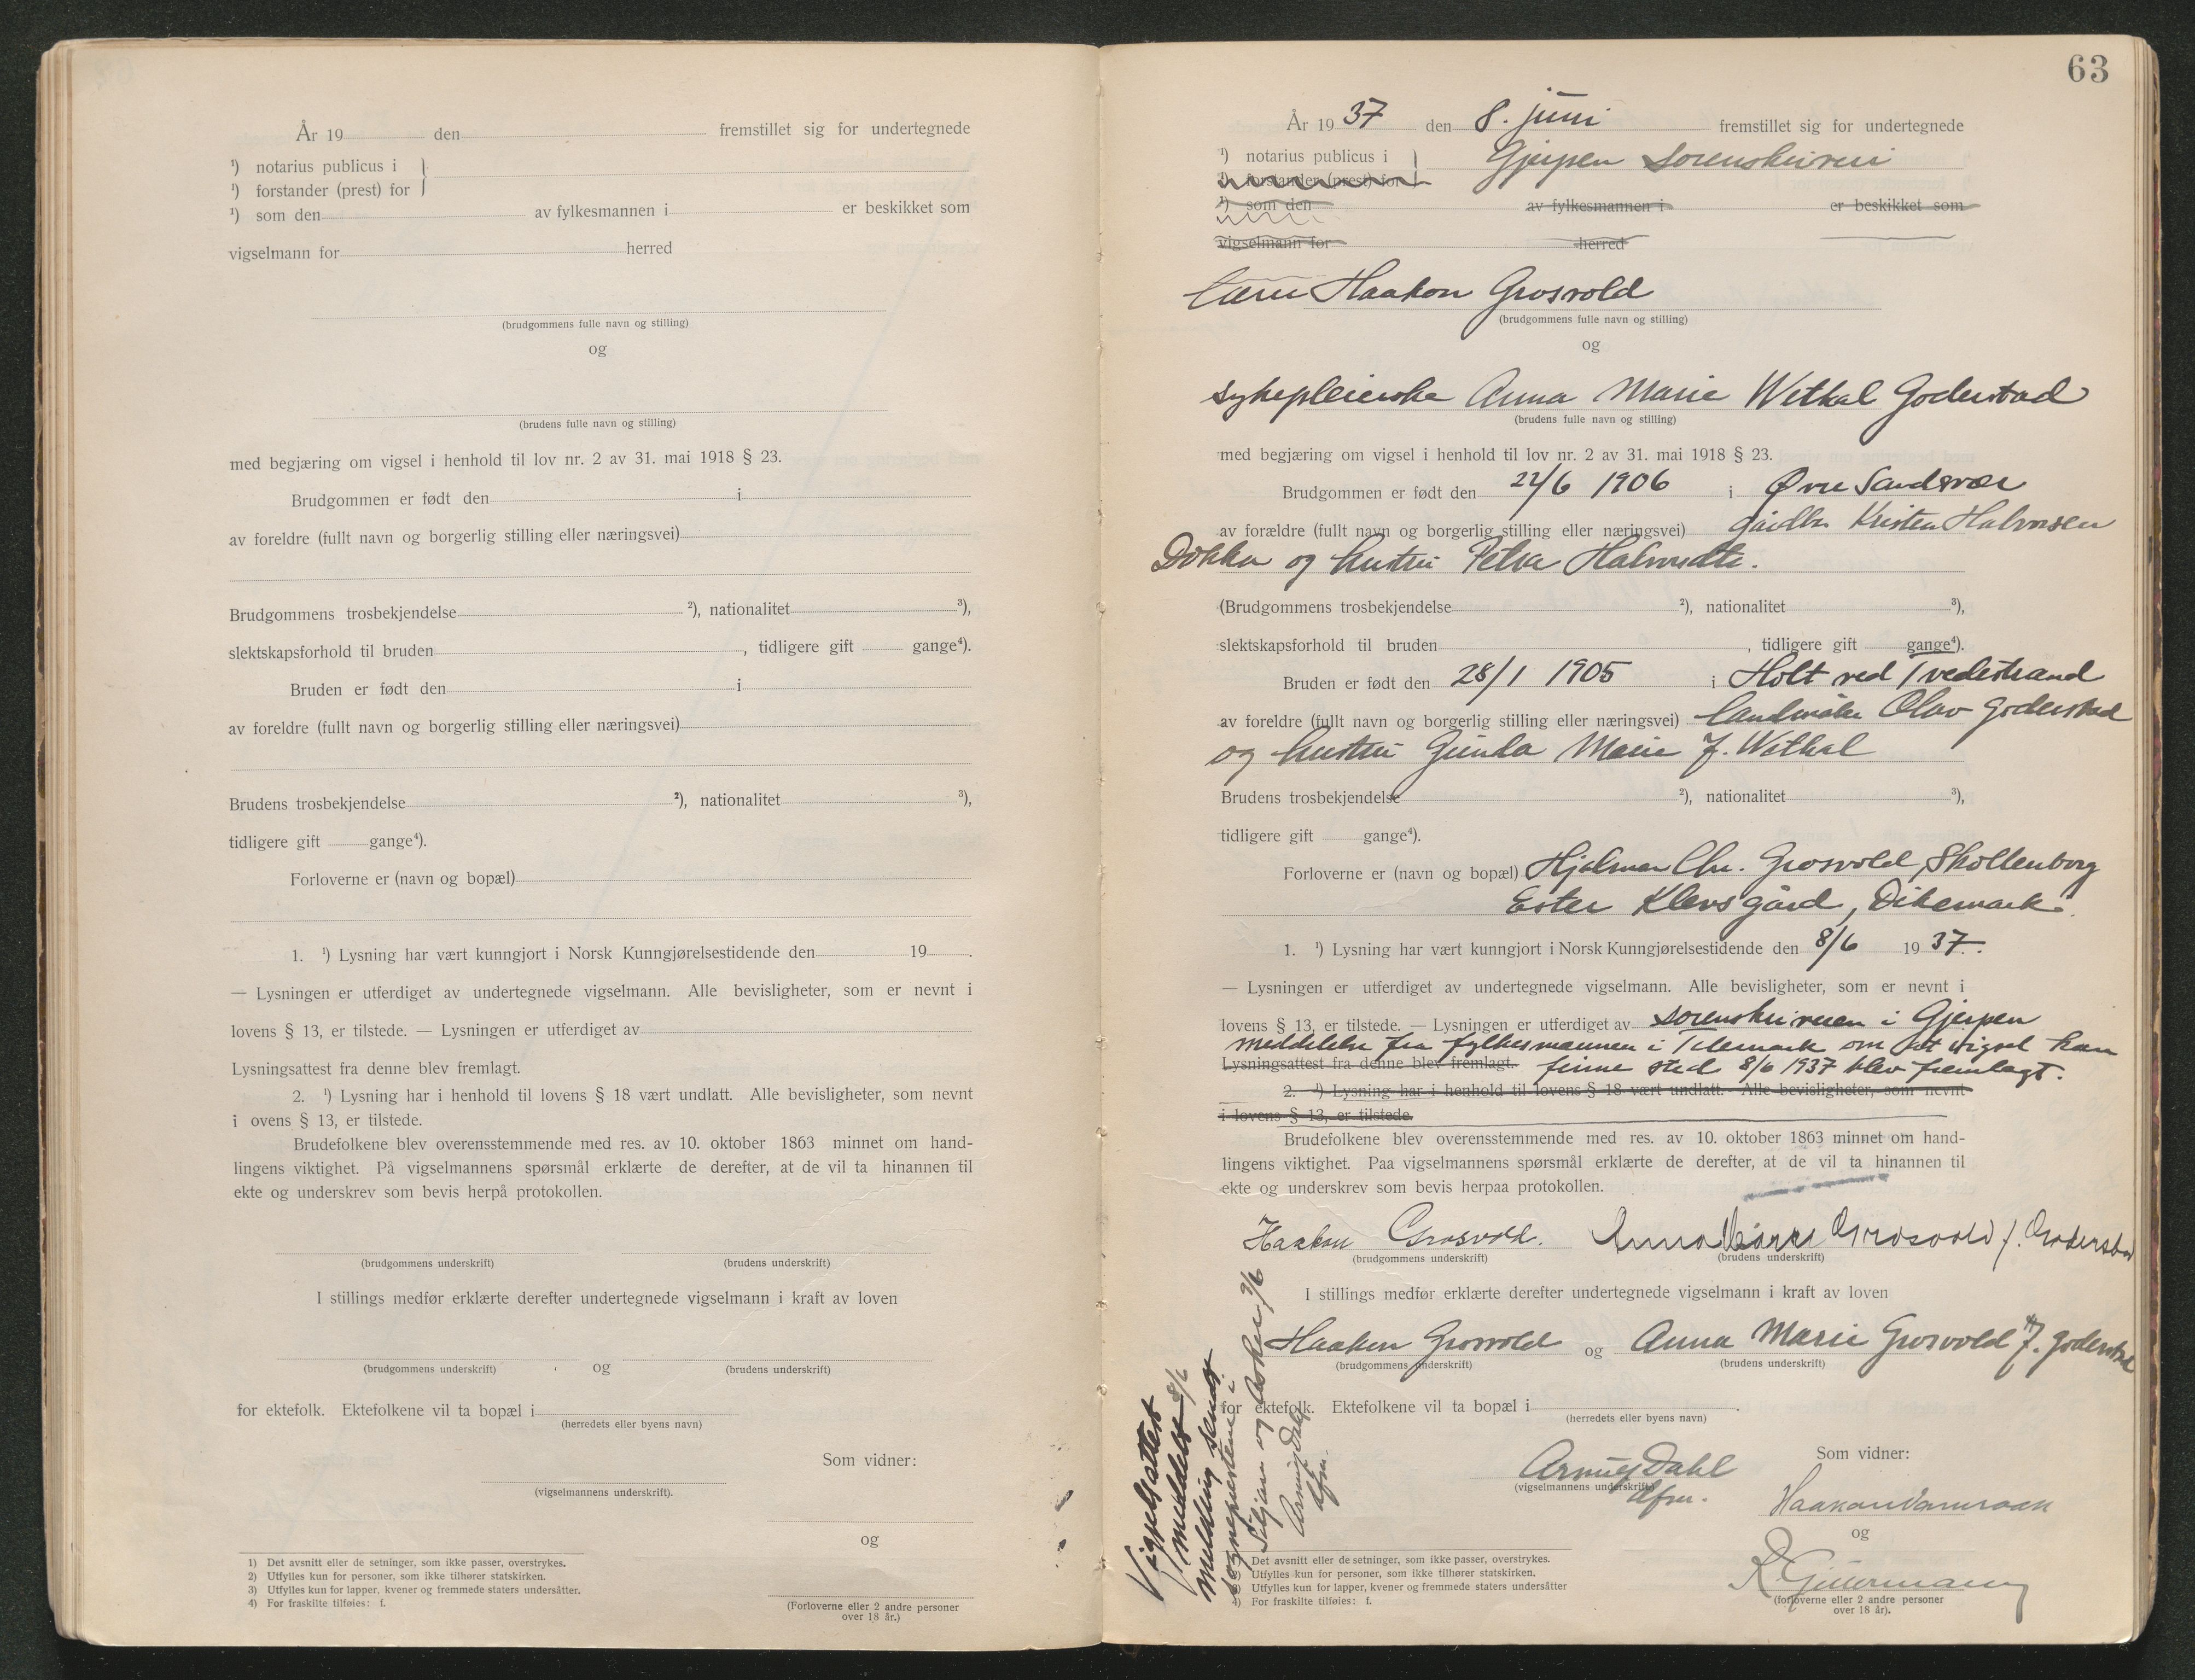 År 19 den fremstillet sig for undertegnede
¹) notarius publicus i
¹) forstander (prest) for
¹) som den av fylkesmannen i er beskikket som
vigselmann for herred
(brudgommens fulle navn og stilling)
og
(brudens fulle navn og stilling)
med begjæring om vigsel i henhold til lov nr. 2 av 31. mai 1918 § 23.
Brudgommen er født den i
av foreldre (fullt navn og borgerlig stilling eller næringsvei)
Brudgommens trosbekjendelse ²), nationalitet ³),
slektskapsforhold til bruden , tidligere gift gange⁴).
Bruden er født den i
av foreldre (fullt navn og borgerlig stilling eller næringsvei)
Brudens trosbekjendelse ²), nationalitet ³),
tidligere gift gange⁴).
Forloverne er (navn og bopæl)
1. ¹) Lysning har vært kunngjort i Norsk Kunngjørelsestidende den 19 .
— Lysningen er utferdiget av undertegnede vigselmann. Alle bevisligheter, som er nevnt i
lovens § 13, er tilstede. — Lysningen er utferdiget av
Lysningsattest fra denne blev fremlagt.
2. ¹) Lysning har i henhold til lovens § 18 vært undlatt. Alle bevisligheter, som nevnt
i ovens § 13, er tilstede.
Brudefolkene blev overensstemmende med res. av 10. oktober 1863 minnet om hand-
lingens viktighet. På vigselmannens spørsmål erklærte de derefter, at de vil ta hinannen til
ekte og underskrev som bevis herpå protokollen.
(brudgommens underskrift) (brudens underskrift)
I stillings medfør erklærte derefter undertegnede vigselmann i kraft av loven
og
(brudgommens underskrift) (brudens underskrift)
for ektefolk. Ektefolkene vil ta bopæl i
(herredets eller byens navn)
Som vidner:
(vigselmannens underskrift).
og
1) Det avsnitt eller de setninger, som ikke passer, overstrykes.
2) Utfylles kun for personer, som ikke tilhører statskirken.
3) Utfylles kun for lapper, kvener og fremmede staters undersåtter.
4) For fraskilte tilføies: f.
(Forloverne eller 2 andre personer
over 18 år.)
63
År 1937 den 8. juni fremstillet sig for undertegnede
¹) notarius publicus i Gjerpen sorenskriveri
¹) forstander (prest) for
¹) som den av fylkesmannen i er beskikket som
vigselmann for herred
Haakon Grosvold
(brudgommens fulle navn og stilling)
og
sykepleierske Anna Marie Wethal Goderstad
(brudens fulle navn og stilling)
med begjæring om vigsel i henhold til lov nr. 2 av 31. mai 1918 § 23.
Brudgommen er født den 22/6 1906 i Øvre Sandsvær
av forældre (fullt navn og borgerlig stilling eller næringsvei) gårdbr. Kristen Halvorsen
Dokka og hustru Petra Halvorsdtr.
(Brudgommens trosbekjendelse ²), nationalitet ³),
slektskapsforhold til bruden , tidligere gift gange⁴).
Bruden er født den 28/1 1905 i Holt ved Tvedestrand
av foreldre (fullt navn og borgerlig stilling eller næringsvei) landmåler Olav Goderstad
og hustru Gunda Marie f. Wethal
Brudens trosbekjendelse ²), nationalitet ³),
tidligere gift gange⁴).
Forloverne er (navn og bopæl) Hjalmar Chr. Grosvold, Skollenborg
Ester Klevsgård, Dikemark.
1. ¹) Lysning har vært kunngjort i Norsk Kunngjørelsestidende den 8/6 1937.
— Lysningen er utferdiget av undertegnede vigselmann. Alle bevisligheter, som er nevnt i
lovens § 13, er tilstede. — Lysningen er utferdiget av sorenskriveren i Gjerpen
meddelelse fra fylkesmannen i Telemark om at vigsel kan
Lysningsattest fra denne blev fremlagt. finne sted 8/6 1937 blev fremlagt.
2. ¹) Lysning har i henhold til lovens § 18 vært undlatt. Alle bevisligheter, som nevnt
i lovens § 13, er tilstede.
Brudefolkene blev overensstemmende med res. av 10. oktober 1863 minnet om hand-
lingens viktighet. Paa vigselmannens spørsmål erklærte de derefter, at de vil ta hinannen til
ekte og underskrev som bevis herpaa protokollen.
Haakon Grosvold. Anna Marie Grosvold f. Goderstad
(brudgommens underskrift) (brudens underskrift)
I stillings medfør erklærte derefter undertegnede vigselmann i kraft av loven
Haakon Grosvold og Anna Marie Grosvold f. Goderstad
(brudgommens underskrift) (brudens underskrift)
for ektefolk. Ektefolkene vil ta bopæl i .
(herredets eller byens navn)
Dahl
Som vidner:
(vigselmannens underskrift)
Haakon
og
(forloverne eller 2 andre personer
over 18 år).
Det avsnitt eller de setninger, som ikke passer, overstrykes.
Utfylles kun for personer, som ikke tilhører statskirken.
Utfylles kun for lapper, kvener og fremmede staters undersåtter
4) For fraskilte tilføies: f.
Vigselsattest
meddelt 8/6
melding sendt
sogneprestene i
Siljan og Asker 9/6
Dahl